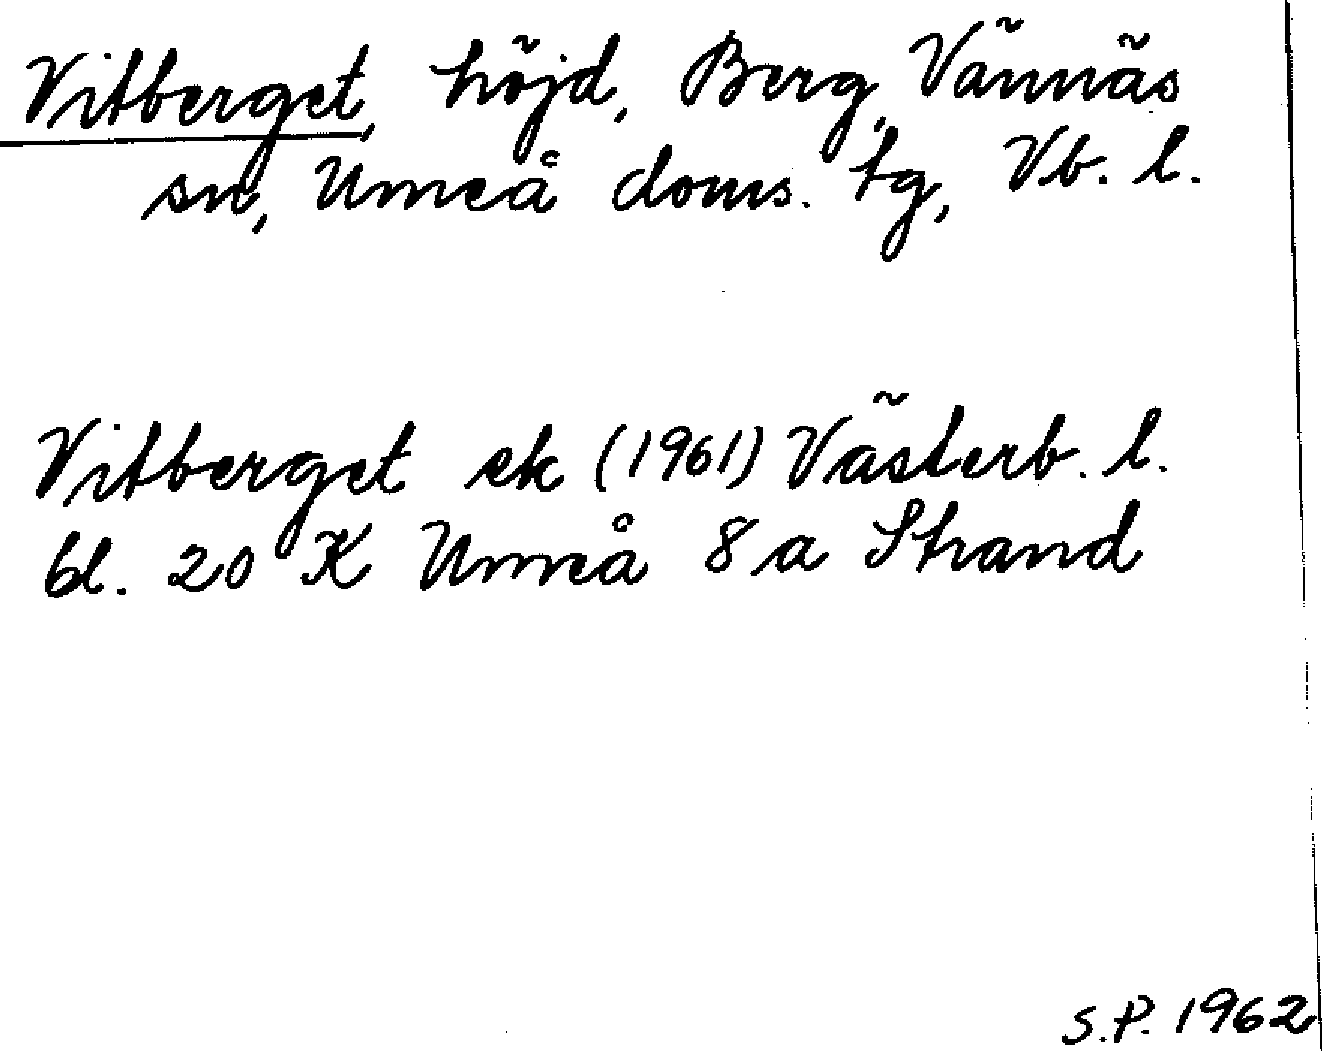 Vitberget, höjd, Berg, Vännäs
sn, Umeå doms. tg, Vb. l.
Vitberget ek (1961) Västerb. l.
bl. 20 K Umeå 8a Strand
S.P. 1962